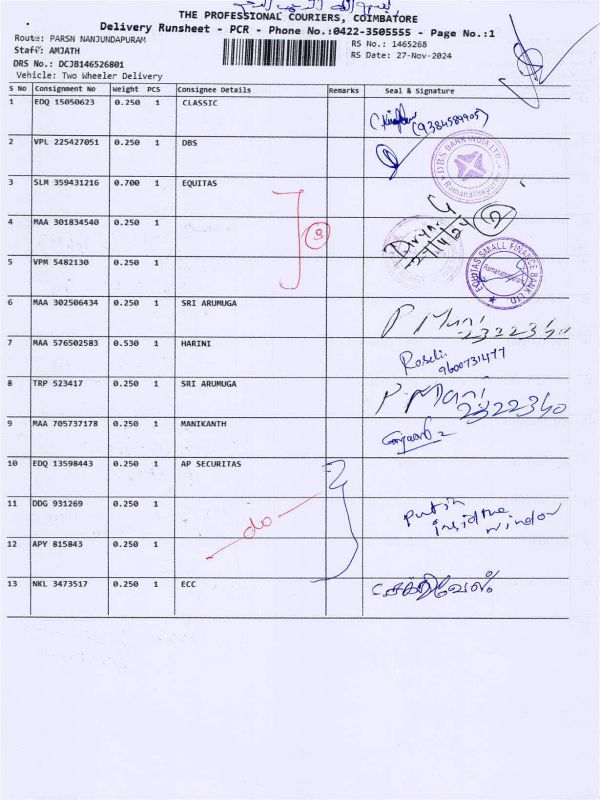 THE PROFESSIONAL COURIERS, COIMBATORE
Delivery Runsheet - PCR - Phone No.:0422-3505555 - Page No.:1
Route: PARSN NANJUNDAPURAM
RS No.: 1465268
Staff: AMJATH
RS Date: 27-Nov-2024
DRS No.: DCJB146526801
Vehicle: Two Wheeler Delivery
S No Consignment No Weight PCS Consignee Details Remarks Seal & Signature
1 EDQ 15050623 0.250 1 CLASSIC
(9384589905)
2 VPL 225427051 0.250 1 DBS
DBS BANK INDIA LTD.
Ramanathapuram
3 SLM 359431216 0.700 1 EQUITAS
3
4 MAA 301834540 0.250 1
5 VPM 5482130 0.250 1
EQUITAS SMALL FINANCE BANK LTD.
Ramanathapuram
6 MAA 302506434 0.250 1 SRI ARUMUGA
P Muni
2322340
7 MAA 576502583 0.530 1 HARINI
Roseli
9600731477
8 TRP 523417 0.250 1 SRI ARUMUGA
P. Muni
2322340
9 MAA 705737178 0.250 1 MANIKANTH
10 EDQ 13598443 0.250 1 AP SECURITAS
11 DDG 931269 0.250 1
do
Put in
inside the
window
12 APY 815843 0.250 1
13 NKL 3473517 0.250 1 ECC